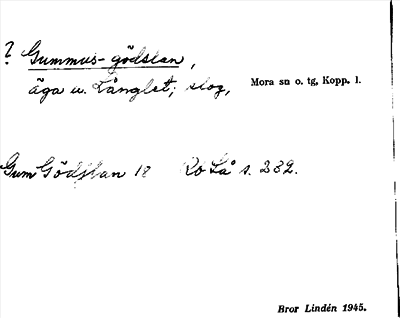 ? Gummus-gödslan,
äga u. Långlet; slog, Mora sn o. tg, Kopp. l.
Gum Gödslan 18 RoLå s. 382.
Bror Lindén 1945.